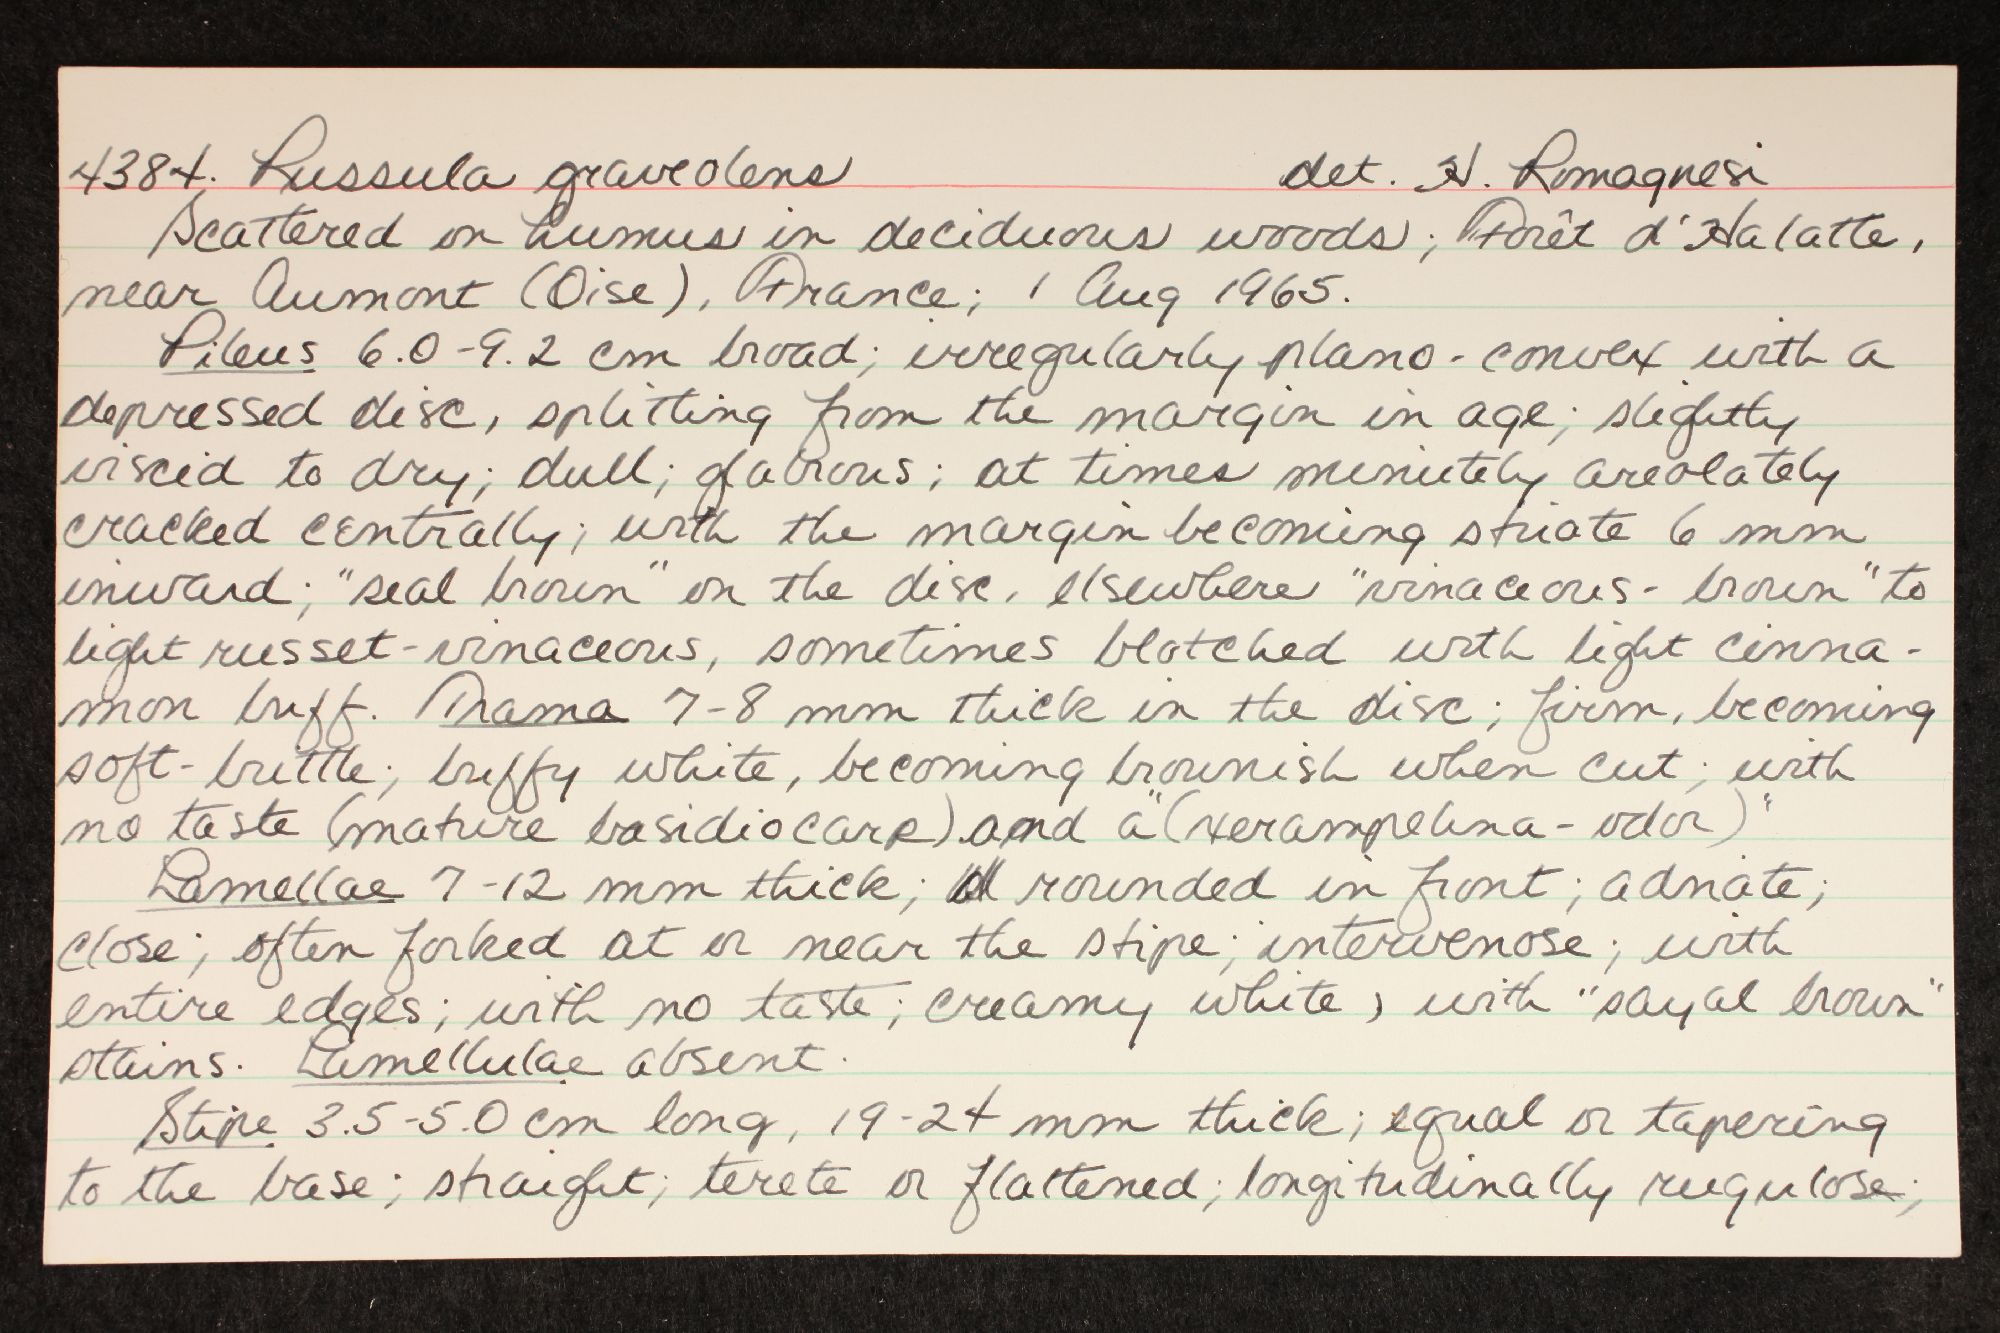 4384. Russula graveolens det. H. Romagnesi
Scattered on humus in deciduous woods; Forêt d'Halatte,
near Aumont (Oise), France; 1 Aug 1965.
Pileus 6.0-9.2 cm broad; irregularly plano-convex with a
depressed disc, splitting from the margin in age; slightly
viscid to dry; dull; glabrous; at times minutely areolately
cracked centrally; with the margin becoming striate 6 mm
inward; "seal brown" on the disc, elsewhere "vinaceous-brown" to
light russet-vinaceous, sometimes blotched with light cinna-
mon buff. Trama 7-8 mm thick in the disc; firm, becoming
soft-brittle; buffy white, becoming brownish when cut; with
no taste (mature basidiocarp) and a "(xerampelina-odor)"
Lamellae 7-12 mm thick; rounded in front; adnate;
close; often forked at or near the stipe; intervenose; with
entire edges; with no taste; creamy white, with "sayal brown"
stains. Lamellulae absent.
Stipe 3.5-5.0 cm long, 19-24 mm thick; equal or tapering
to the base; straight; terete or flattened; longitudinally rugulose;